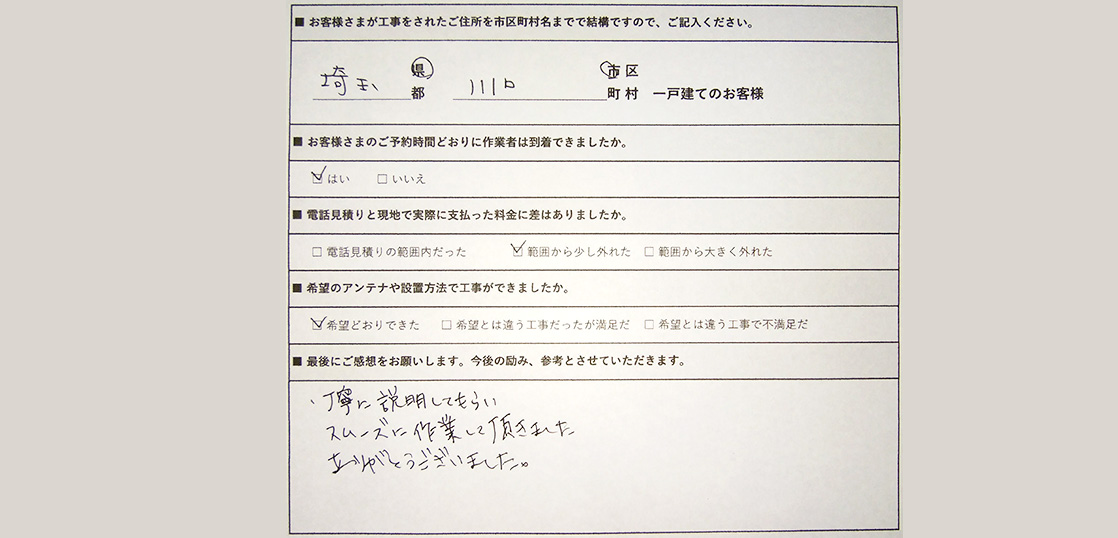 ■ お客様さまが工事をされたご住所を市区町村名までで結構ですので、ご記入ください。
埼玉 県 川口 市 区
都 町 村 一戸建てのお客様
■ お客様さまのご予約時間どおりに作業者は到着できましたか。
☑ はい □ いいえ
■ 電話見積りと現地で実際に支払った料金に差はありましたか。
□ 電話見積りの範囲内だった ☑ 範囲から少し外れた □ 範囲から大きく外れた
■ 希望のアンテナや設置方法で工事ができましたか。
☑ 希望どおりできた □ 希望とは違う工事だったが満足だ □ 希望とは違う工事で不満足だ
■ 最後にご感想をお願いします。今後の励み、参考とさせていただきます。
、丁寧に説明してもらい
スムーズに作業して頂きました
ありがとうございました。